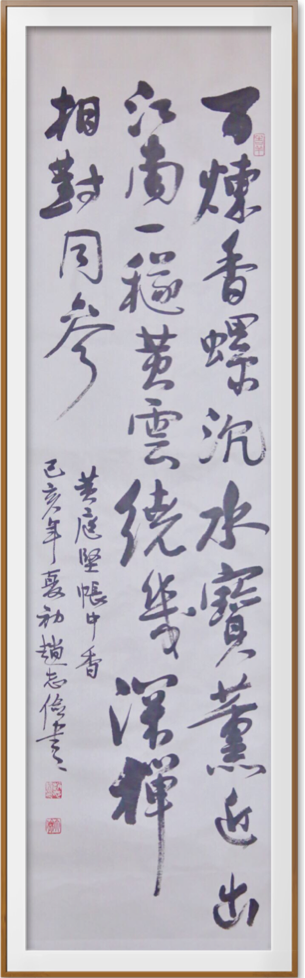 百煉香螺沉水寶薰近出
江南一穟黄雲繞幾深禪
相對同參
黄庭堅帳中香
己亥年夏初趙志儉書